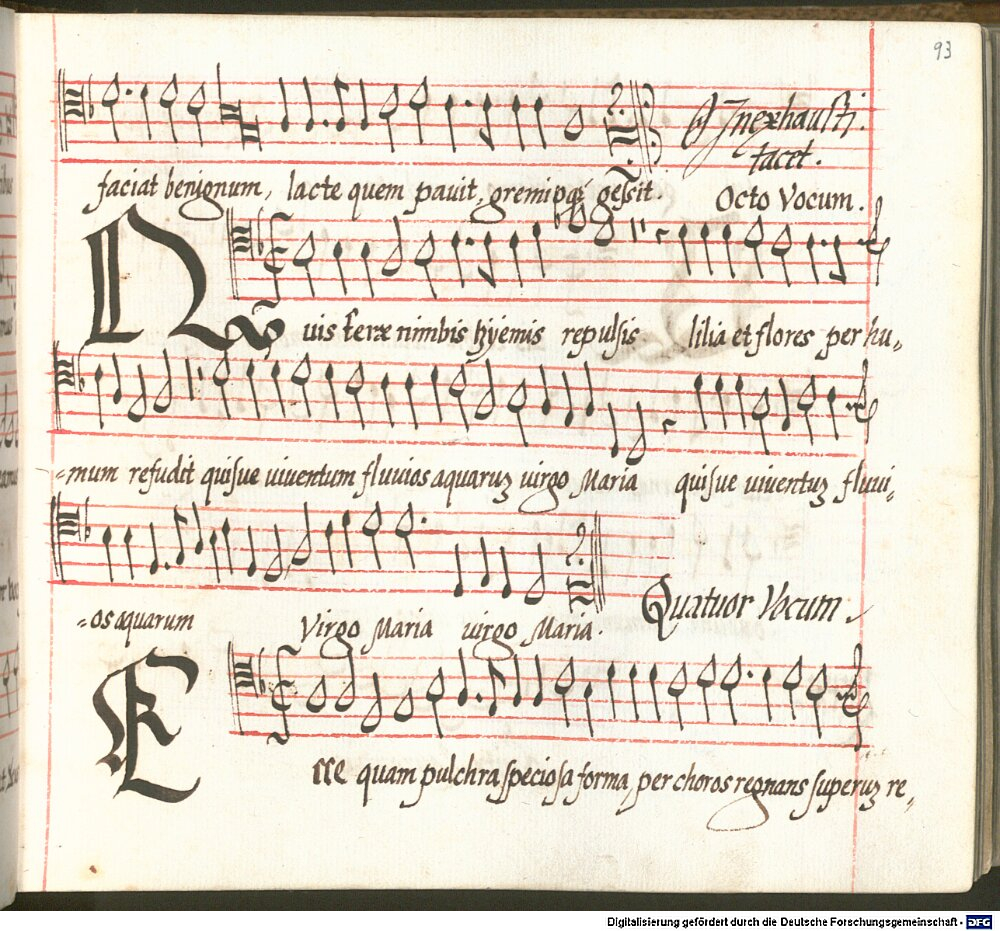 93
Inexhausti.
tacet.
faciat benignum, lacte quem pavit, gremioqꝫ gessit. Octo Vocum.
Quis terræ nimbis hyemis repulsis lilia et flores per hu„
-mum refudit quisue viventum fluvios aquaruꝫ virgo Maria quisue viventuꝫ fluvi„
-os aquarum Virgo Maria virgo Maria.
Quatuor Vocum.
Ecce quam pulchra speciosa forma, per choros regnans superuꝫ re„
Digitalisierung gefördert durch die Deutsche Forschungsgemeinschaft - DFG